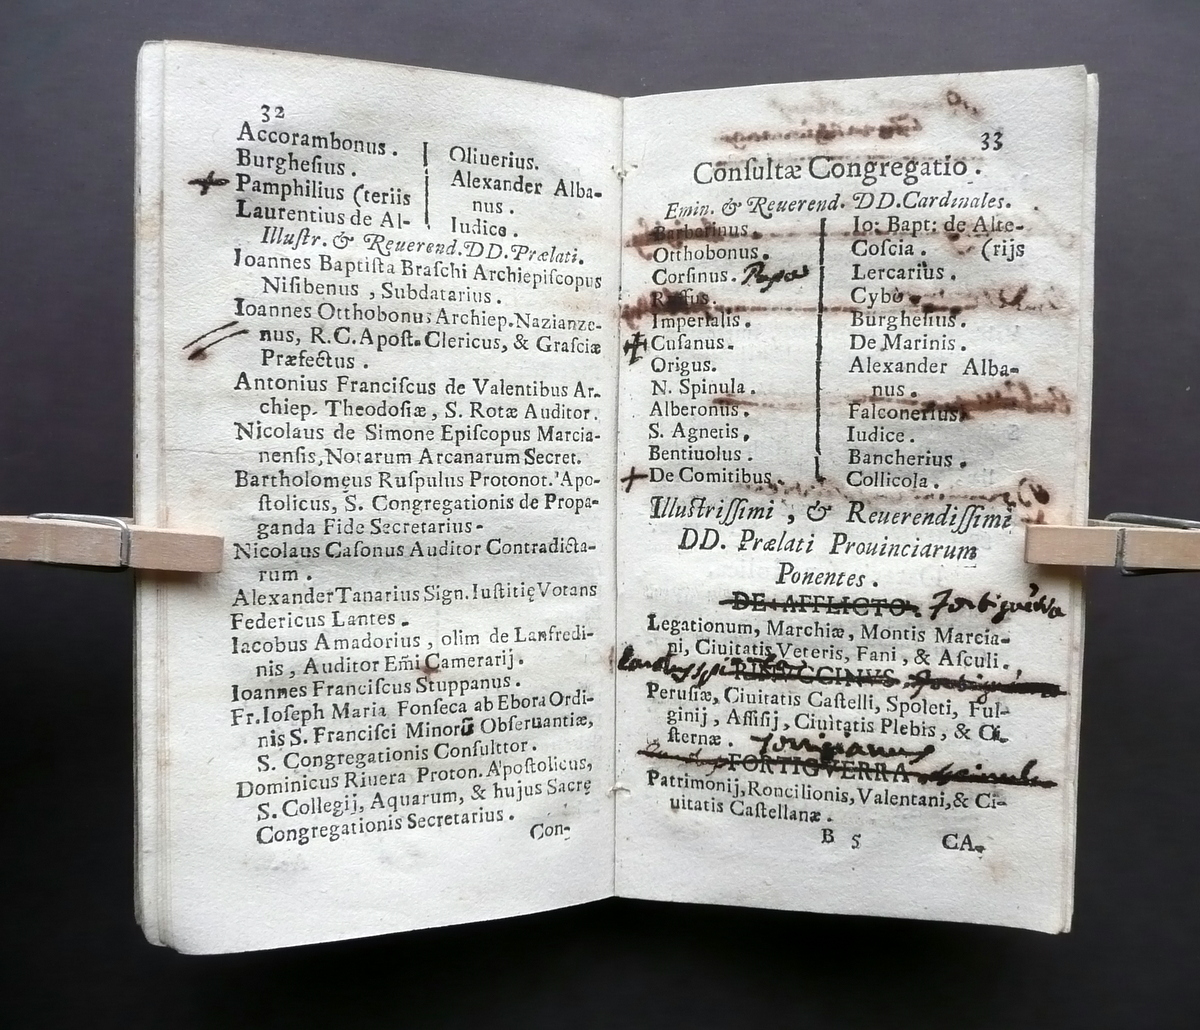 32
Accorambonus.
Burgheſius.
Pamphilius (teriis
Laurentius de Al-
Oliuerius.
Alexander Alba-
nus.
Iudice.
Illuſtr. & Reuerend. DD. Prælati.
Ioannes Baptiſta Braſchi Archiepiſcopus
Niſibenus, Subdatarius.
Ioannes Otthobonus Archiep. Nazianze-
nus, R.C. Apoſt. Clericus, & Graſciæ
Præfectus.
Antonius Franciſcus de Valentibus Ar-
chiep. Theodoſiæ, S. Rotæ Auditor.
Nicolaus de Simone Epiſcopus Marcia-
nenſis, Notarum Arcanarum Secret.
Bartholomęus Ruſpulus Protonot. Apo-
ſtolicus, S. Congregationis de Propa-
ganda Fide Secretarius-
Nicolaus Caſonus Auditor Contradicta-
rum.
Alexander Tanarius Sign. Iuſtitię Votans
Federicus Lantes.
Iacobus Amadorius, olim de Lanfredi-
nis, Auditor Em̃i Camerarij.
Ioannes Franciſcus Stuppanus.
Fr. Ioſeph Maria Fonſeca ab Ebora Ordi-
nis S. Franciſci Minorũ Obſeruantiæ,
S. Congregationis Conſulttor.
Dominicus Riuera Proton. Apoſtolicus,
S. Collegij, Aquarum, & hujus Sacrę
Congregationis Secretarius.
Con-
33
Conſultæ Congregatio.
Emin. & Reuerend. DD. Cardinales.
Barberinus.
Otthobonus.
Corſinus. Papa
Ruffus.
Imperialis.
Cuſanus.
Origus.
N. Spinula.
Alberonus.
S. Agnetis.
Bentiuolus.
De Comitibus.
Io: Bapt: de Alte-
Coſcia. (rijs
Lercarius.
Cybò
Burgheſius.
De Marinis.
Alexander Alba-
nus.
Falconerius.
Iudice.
Bancherius.
Collicola.
Illuſtriſſimi, & Reuerendiſſimi
DD. Prælati Prouinciarum
Ponentes.
DE AFFLICTO.
Legationum, Marchiæ, Montis Marcia-
ni, Ciuitatis Veteris, Fani, & Aſculi.
Peruſiæ, Ciuitatis Caſtelli, Spoleti, Ful-
ginij, Aſſiſij, Ciuitatis Plebis, & Ci-
ſternæ.
FORTIGVERRA
Patrimonij, Roncilionis, Valentani, & Ci-
uitatis Caſtellanæ.
B 5
CA-